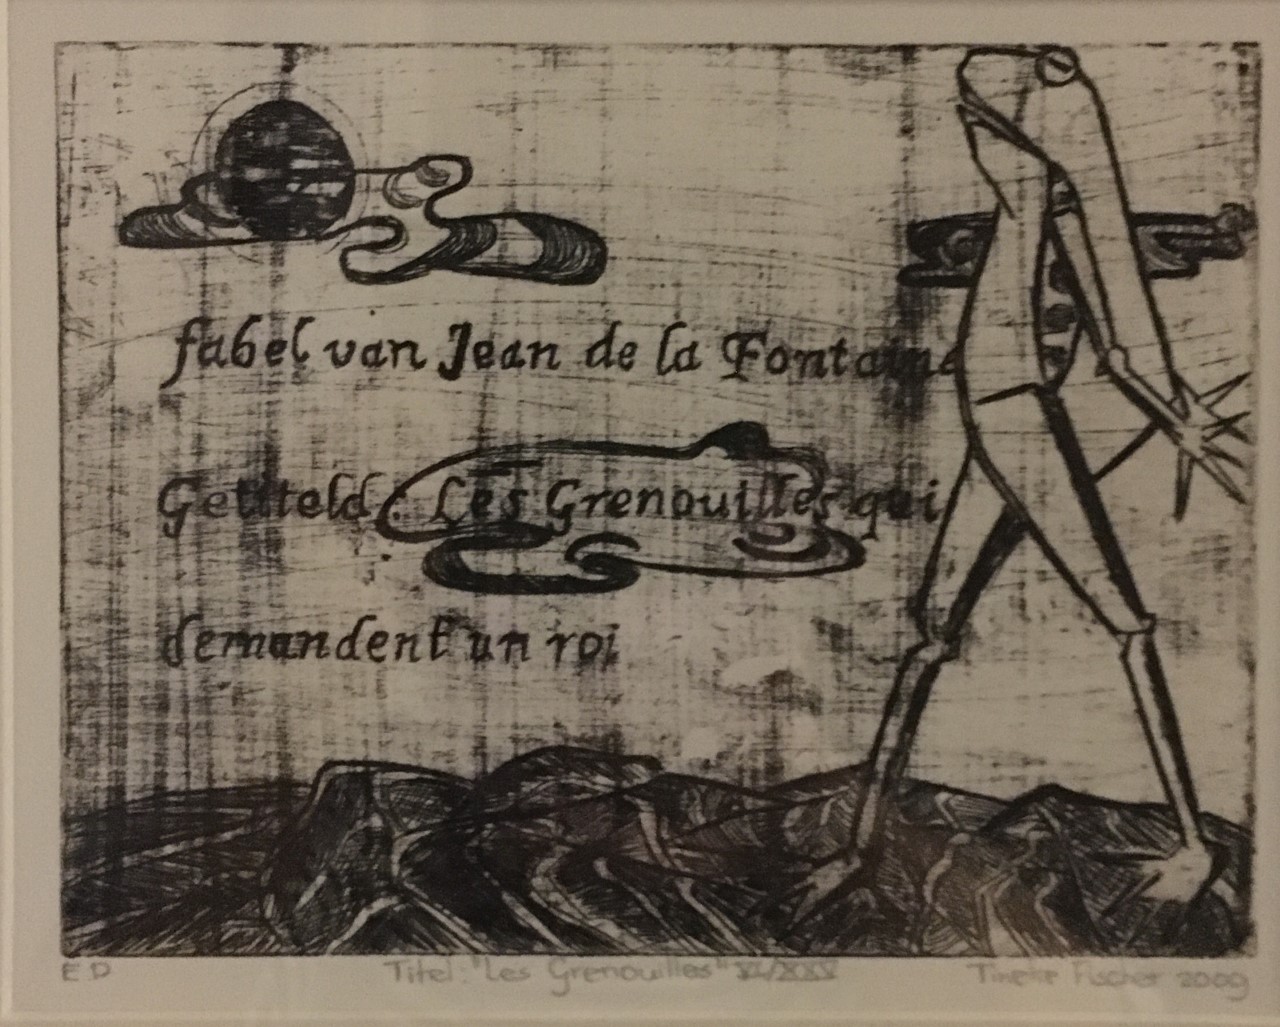 fabel van Jean de la Fontaine
Getiteld: Les Grenouilles qui
demandent un roi
ED Titel: "Les Grenouilles" VI/XXX Tineke Fuscher 2009